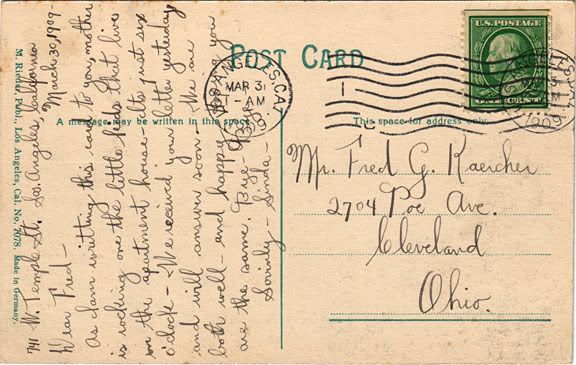 POST CARD
U.S. POSTAGE
ONE CENT
LOS ANGELES, CAL.
MAR 31
1-AM
1909
A message may be written in this space
This space for address only.
M. Rieder, Publ., Los Angeles, Cal. No. 7078. Made in Germany.
741 W. Temple St. Los Angeles, California
March 30, 1909-
Dear Fred-
As I am writting this card to you, mother
is rocking one the little kids that live
on the apartment house - its just six
o'clock - We received your letter yesterday
and will answer soon We are
both well - and happy hope you
are the same. Bye-
Lovinly- Linda-
Mr. Fred G. Kaercher
2704 Poe Ave.
Cleveland
Ohio.